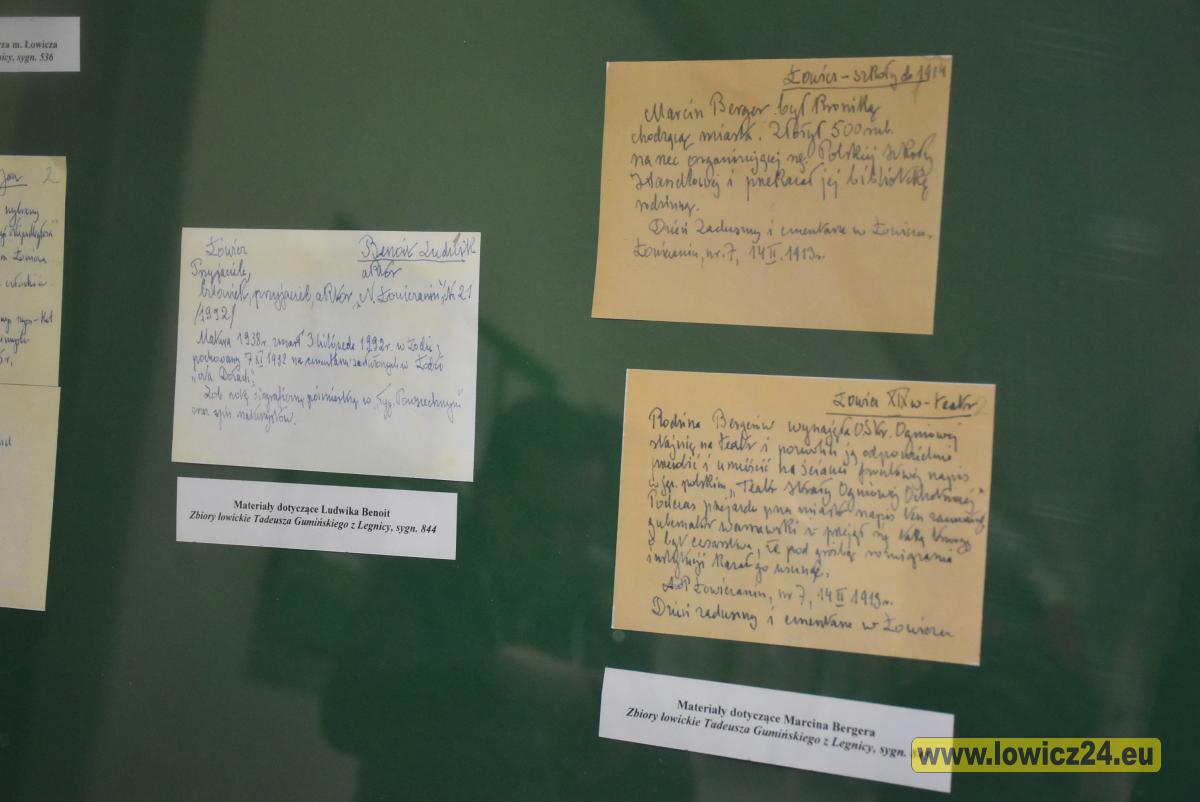 rza m. Łowicza
nicy, sygn. 536
2
wybrany
Łowicz Benoit Ludwik
Przyjaciele, aktor
człowiek, przyjaciel, aktor „N. Łowiczanin”, Nr 21
/1992/
Matura 1938r. zmarł 3 listopada 1992r. w Łodzi,
pochowany 7 XI 1992 na cmentarzu w Łodzi
„Na Dołach”.
Zob. notkę
oraz spis maturzystów.
Materiały dotyczące Ludwika Benoit
Zbiory łowickie Tadeusza Gumińskiego z Legnicy, sygn. 844
Łowicz – szkoły do 1914
Marcin Berger był kroniką
chodzącą miasta. Złożył 500 rub.
na rzecz organizującej się Polskiej Szkoły
Handlowej i przekazał jej bibliotekę
rodzinną.
Dzień Zaduszny i cmentarze w Łowiczu.
Łowiczanin, nr. 7, 14 II 1913r.
Łowicz XIX w – teatr 2
Rodzina Bergerów wynajęła OStr. Ogniowej
stajnię na teatr i pozwoliła ją odpowiednio
i umieścić na ścianie frontowej napis
w jęz. polskim „Teatr Straży Ogniowej Ochotniczej”
Podczas przejazdu przez miasto napis ten zauważył
gubernator warszawski i przejął się taką
że pod groźbą rozwiązania
instytucji kazał go usunąć.
Łowiczanin, nr 7, 14 II 1913r.
Dzień zaduszny i cmentarze w Łowiczu
Materiały dotyczące Marcina Bergera
Zbiory łowickie Tadeusza Gumińskiego z Legnicy, sygn.
www.lowicz24.eu